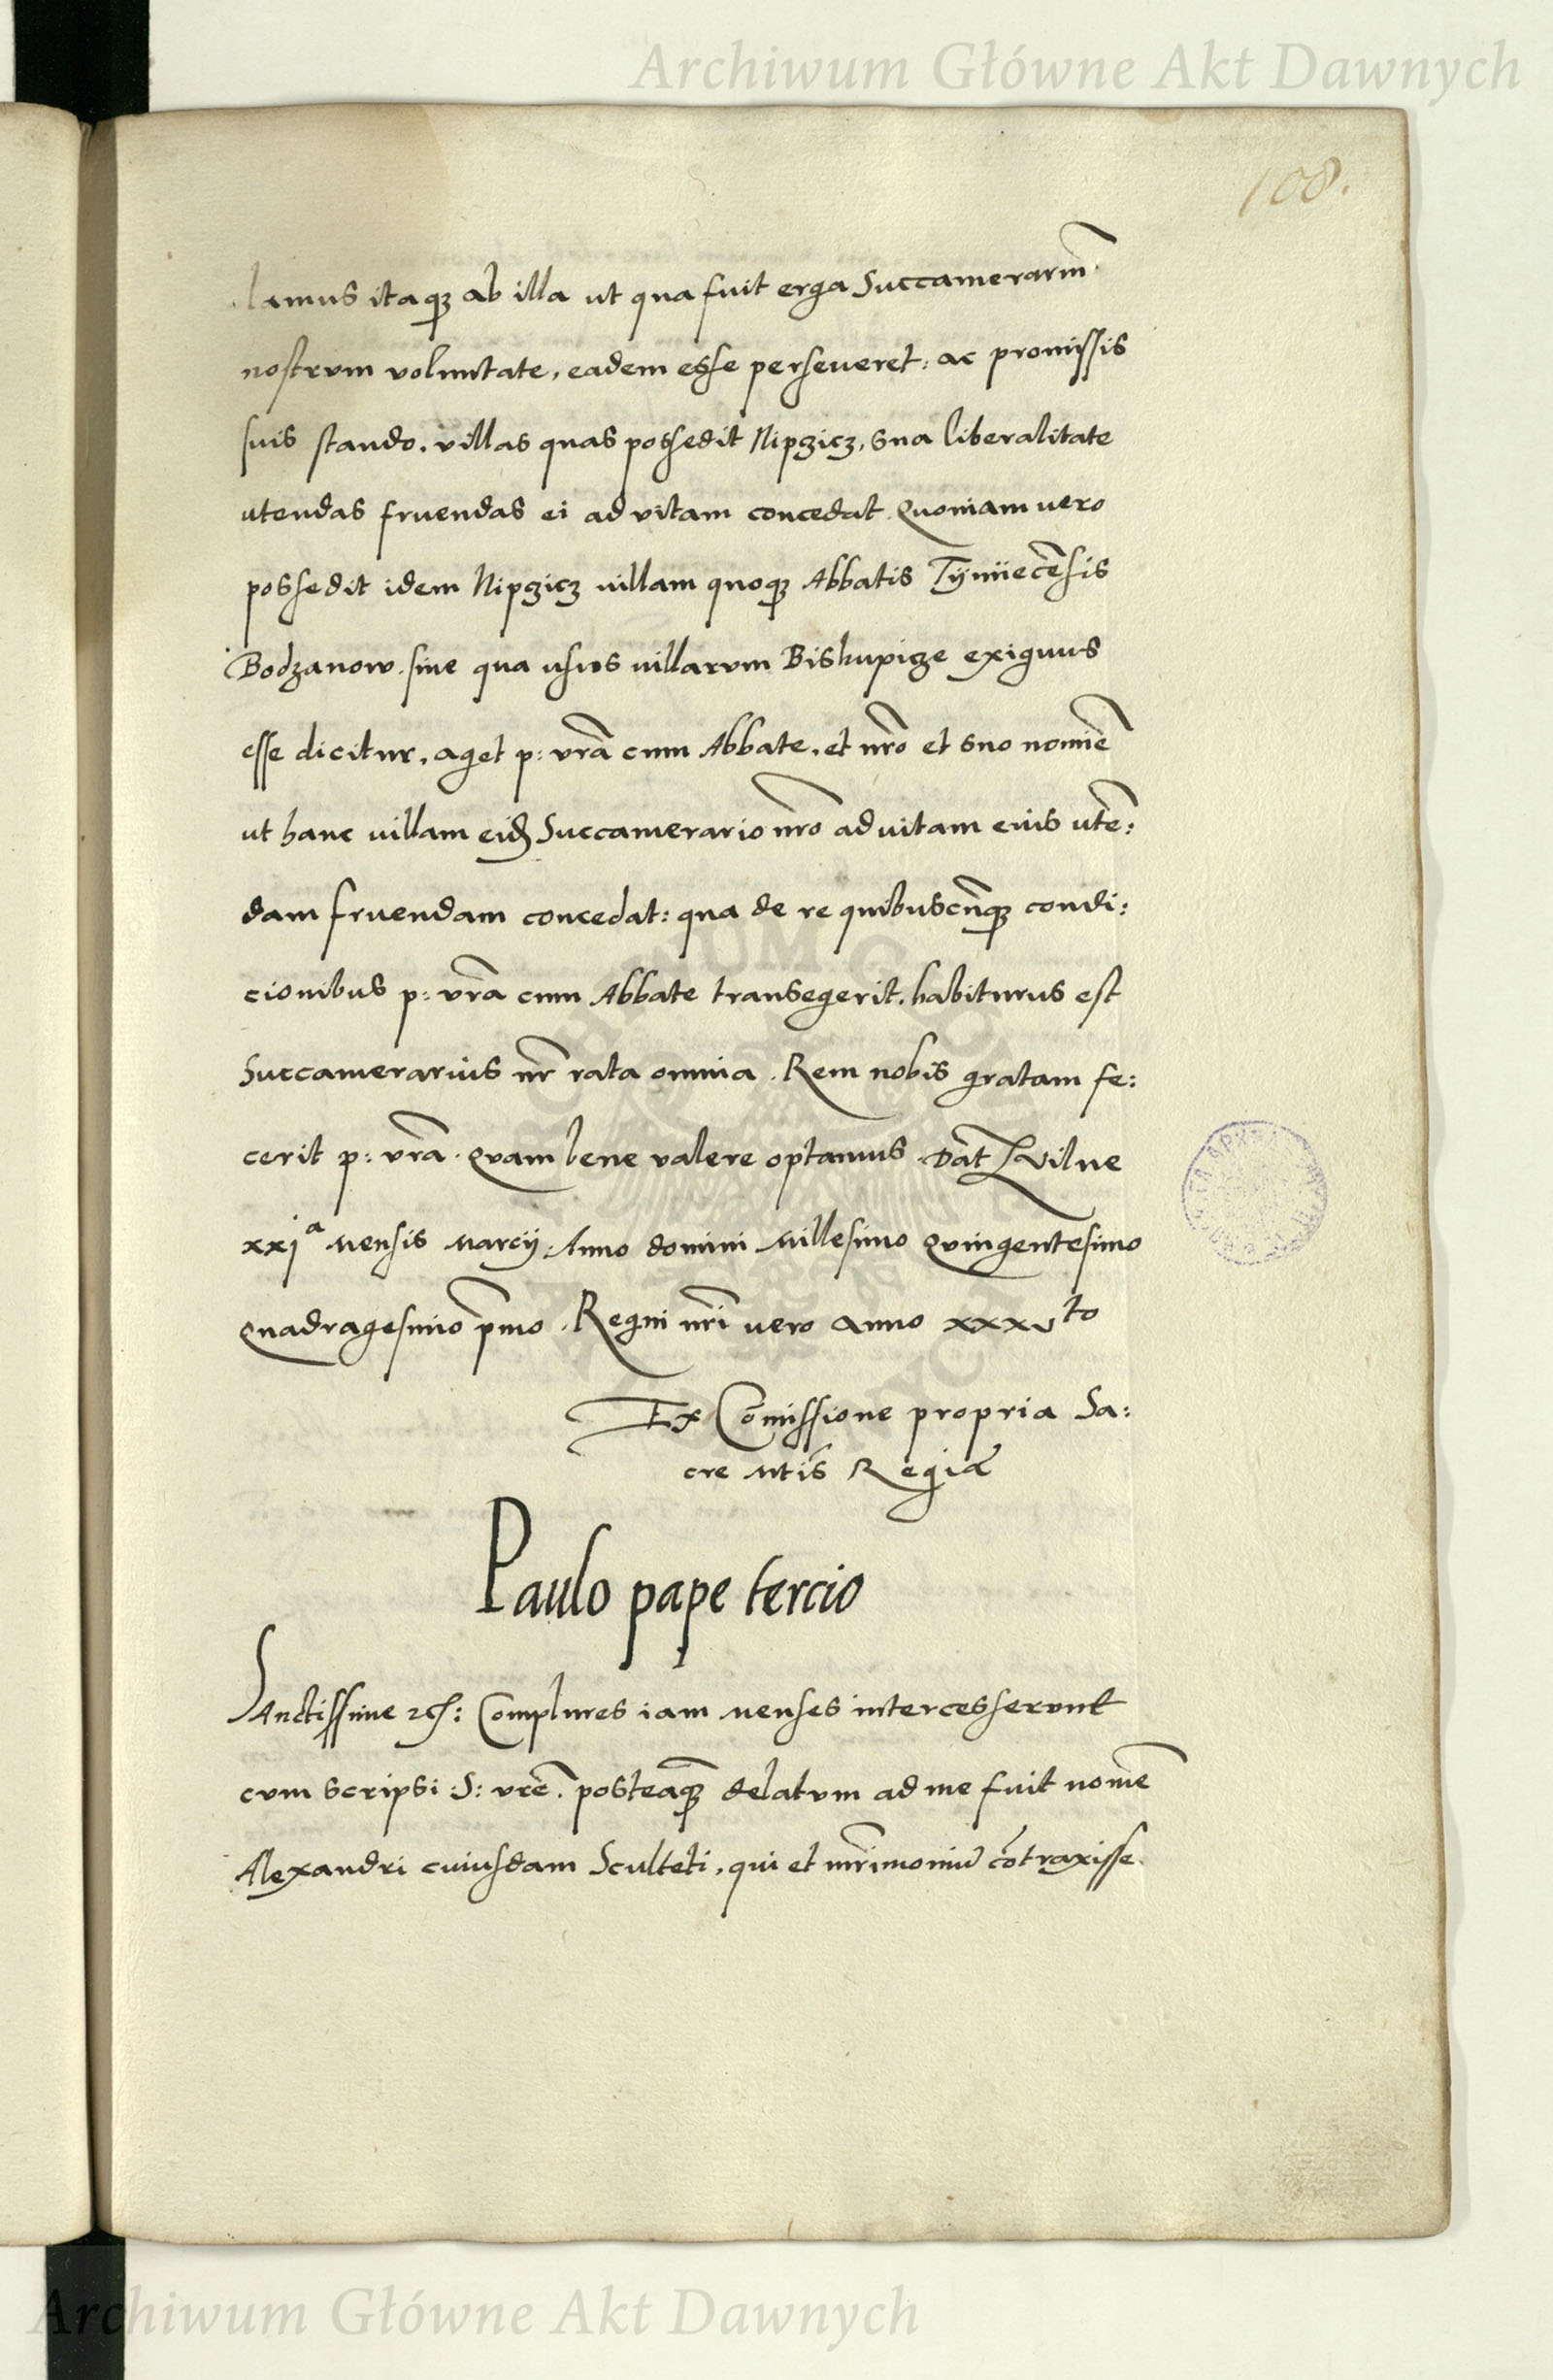 Archiwum Główne Akt Dawnych
108.
lamus itaqꝫ ab illa ut qua fuit erga Succamerariū
nostrum voluntate, eadem esse perseueret: ac promissis
suis stando, villas quas possedit Nipszicz, sua liberalitate
utendas fruendas ei ad vitam concedat. Quoniam vero
possedit idem Nipszicz villam quoqꝫ Abbatis Tÿniiecēsis
Bodzanow. sine qua usus villarum Biskupicze exiguus
esse dicitur, aget p: vrā cum Abbate, et nrō et suo nomīe
ut hanc villam eid Succamerario nrō ad vitam eius utē:
dam fruendam concedat: qua de re quibuscūqꝫ condi:
cionibus p: vrā cum Abbate transegerit, habiturus est
Succamerarius nr̄ rata omnia. Rem nobis gratam fe:
cerit p: vrā. Quam bene valere optamus. Dat̄ Vilne
xxjª Mensis Marcij: Anno domini Millesimo Quingentesimo
Quadragesimo pm̄o. Regni nrī vero Anno xxxvto
Ex Cōmissione propria Sa:
cre Mtīs Regiæ
Paulo pape tercio
Sanctissime etc: Complures iam menses intercesserunt
cum scripsi :S: vrē. posteaqꝫ delatum ad me fuit nomē
Alexandri cuiusdam Sculteti, qui et mr̄imoniū cōtraxisse
Archiwum Główne Akt Dawnych